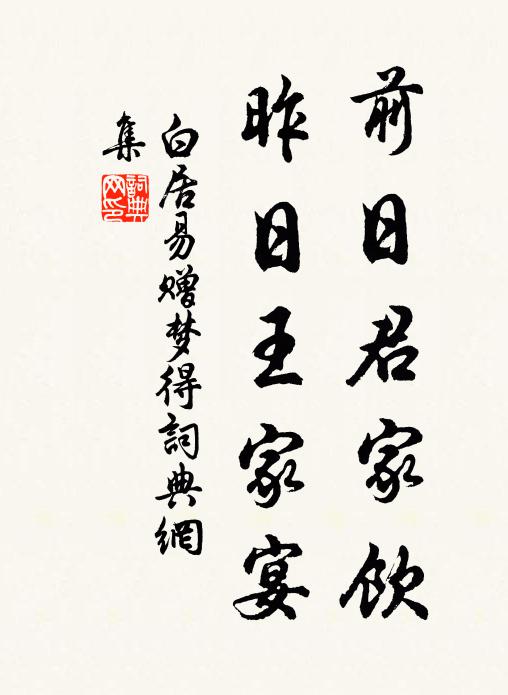 前日君家飲
昨日王家宴
白居易赠梦得詞典網
集
詞典网印